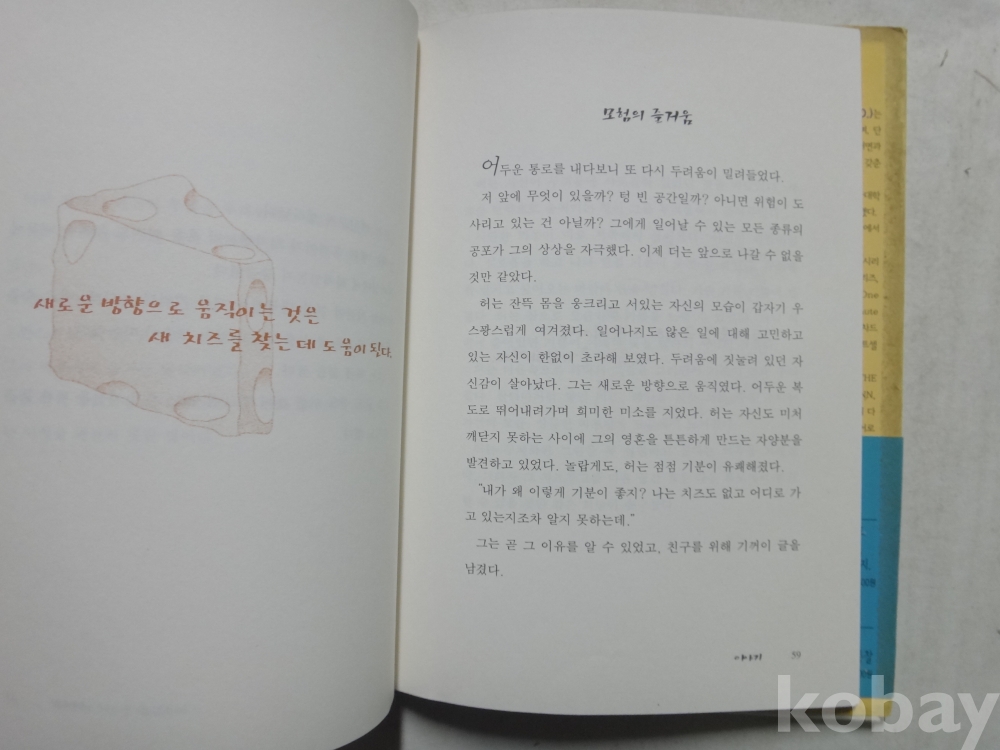 새로운 방향으로 움직이는 것은
새 치즈를 찾는데 도움이 된다.
모험의 즐거움
어두운 통로를 내다보니 또 다시 두려움이 밀려들었다.
저 앞에 무엇이 있을까? 텅 빈 공간일까? 아니면 위험이 도
사리고 있는 건 아닐까? 그에게 일어날 수 있는 모든 종류의
공포가 그의 상상을 자극했다. 이제 더는 앞으로 나갈 수 없을
것만 같았다.
허는 잔뜩 몸을 웅크리고 서있는 자신의 모습이 갑자기 우
스꽝스럽게 여겨졌다. 일어나지도 않은 일에 대해 고민하고
있는 자신이 한없이 초라해 보였다. 두려움에 짓눌려 있던 자
신감이 살아났다. 그는 새로운 방향으로 움직였다. 어두운 복
도로 뛰어내려가며 희미한 미소를 지었다. 허는 자신도 미처
깨닫지 못하는 사이에 그의 영혼을 튼튼하게 만드는 자양분을
발견하고 있었다. 놀랍게도, 허는 점점 기분이 유쾌해졌다.
"내가 왜 이렇게 기분이 좋지? 나는 치즈도 없고 어디로 가
고 있는지조차 알지 못하는데."
그는 곧 그 이유를 알 수 있었고, 친구를 위해 기꺼이 글을
남겼다.
이야기 59
kobay